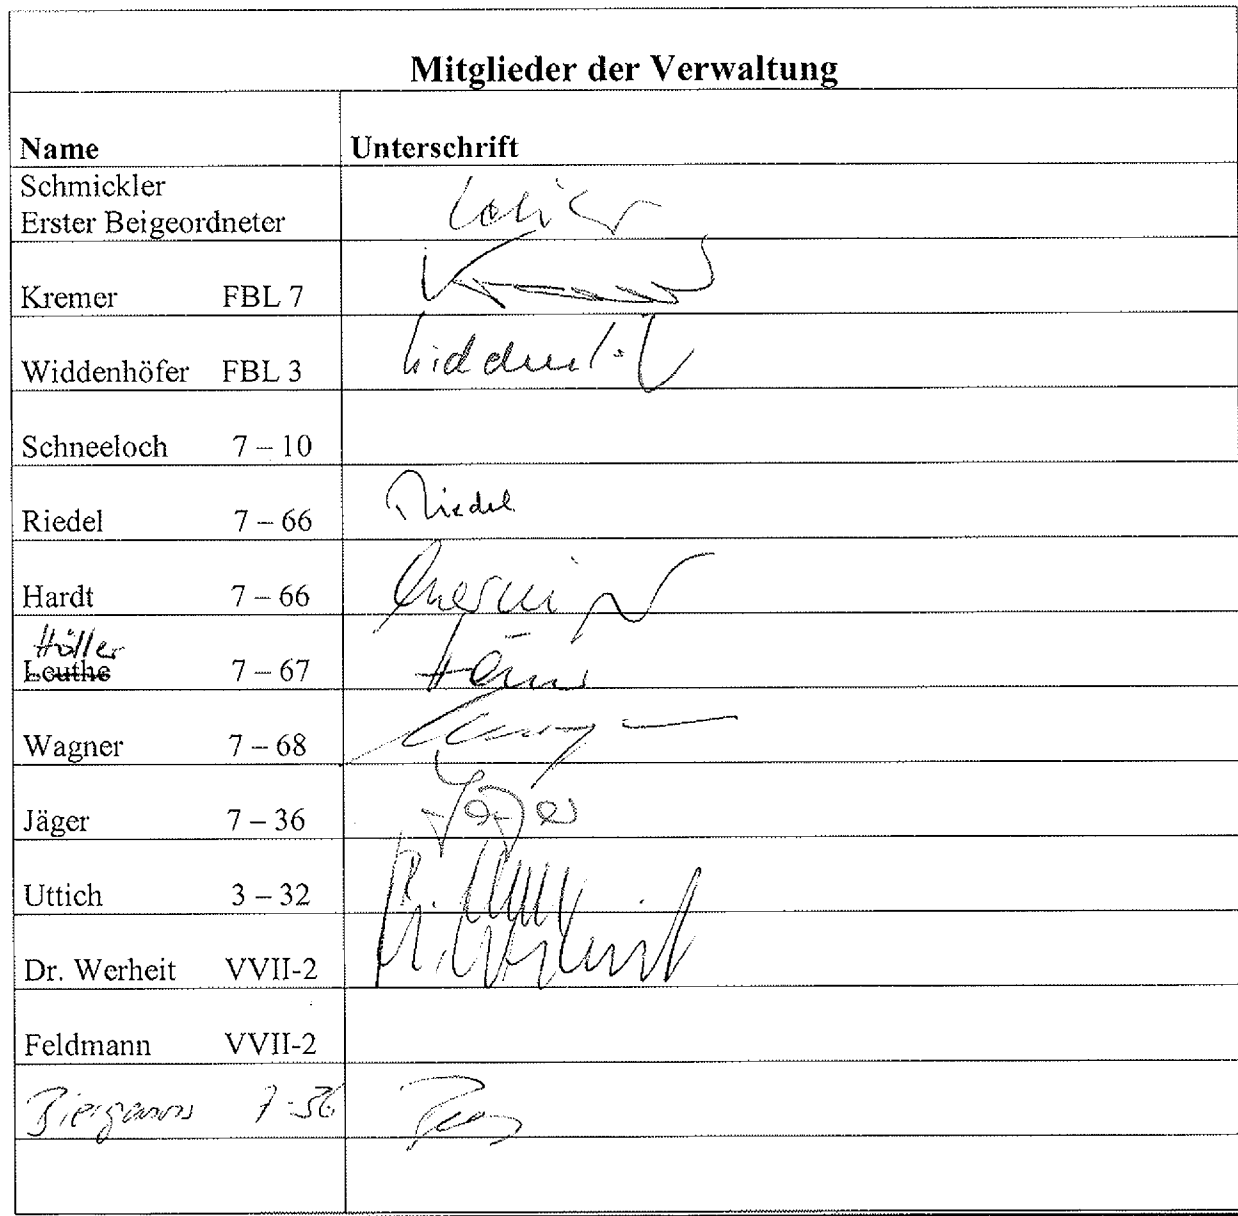 Mitglieder der Verwaltung
Name Unterschrift
Schmickler
Erster Beigeordneter
Kremer FBL 7
Widdenhöfer FBL 3
Schneeloch 7 – 10
Riedel 7 – 66 Riedel
Hardt 7 – 66
Höller
Leuthe 7 – 67
Wagner 7 – 68
Jäger 7 – 36 Jäger
Uttich 3 – 32
Dr. Werheit VVII-2
Feldmann VVII-2
7-36